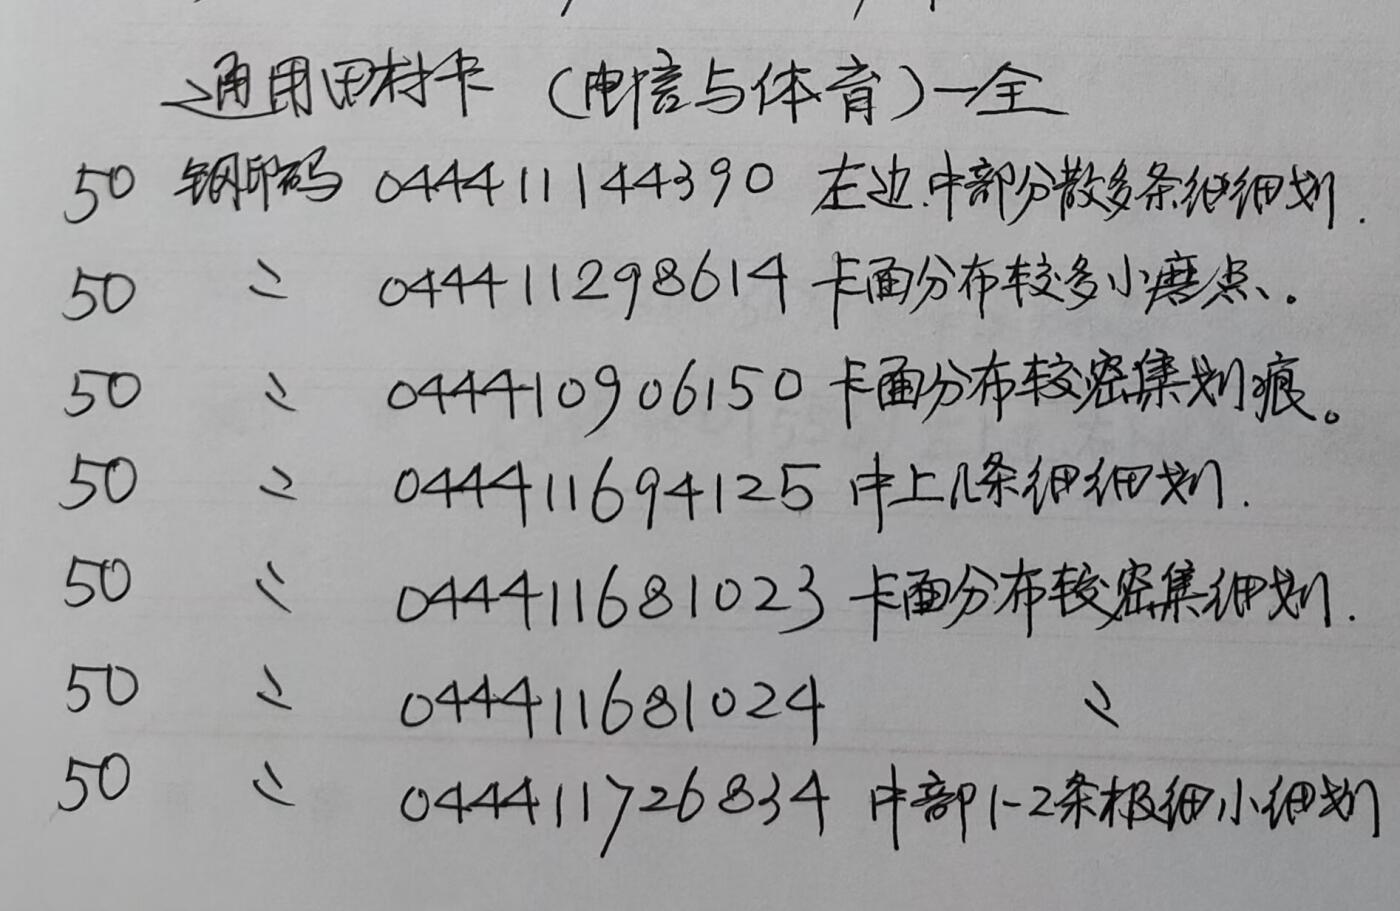 通用田村卡（电信与体育）一全
50 钢印码 044411144390 左边.中部分散多条细细划.
50 〃 044411298614 卡面分布较多小磨点、。
50 〃 044410906150 卡面分布较密集划痕。
50 〃 044411694125 中上几条细细划.
50 〃 044411681023 卡面分布较密集细划.
50 〃 044411681024 〃
50 〃 044411726834 中部1-2条极细小细划